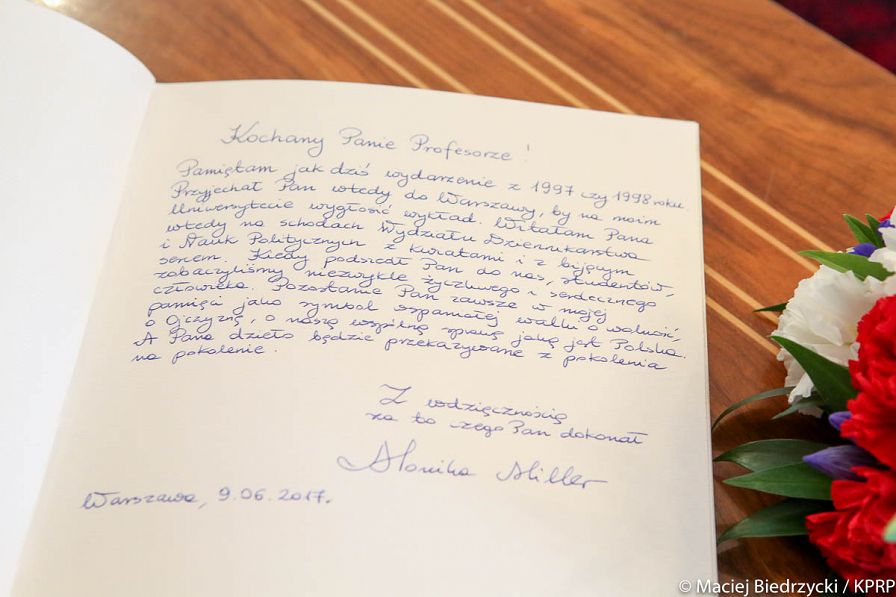 Kochany Panie Profesorze!
Pamiętam jak dziś wydarzenie z 1997 czy 1998 roku.
Przyjechał Pan wtedy do Warszawy, by na moim
Uniwersytecie wygłosić wykład. Witałam Pana
wtedy na schodach Wydziału Dziennikarstwa
i Nauk Politycznych z kwiatami i z bijącym
sercem. Kiedy podszedł Pan do nas, studentów,
zobaczyliśmy niezwykle życzliwego i serdecznego
człowieka. Pozostanie Pan zawsze w mojej
pamięci jako symbol wspaniałej walki o wolność,
o Ojczyznę, o naszą wspólną sprawę jaką jest Polska.
A Pana dzieło będzie przekazywane z pokolenia
na pokolenie.
Z wdzięcznością
za to czego Pan dokonał
Monika Miller
Warszawa, 9.06.2017.
© Maciej Biedrzycki / KPRP